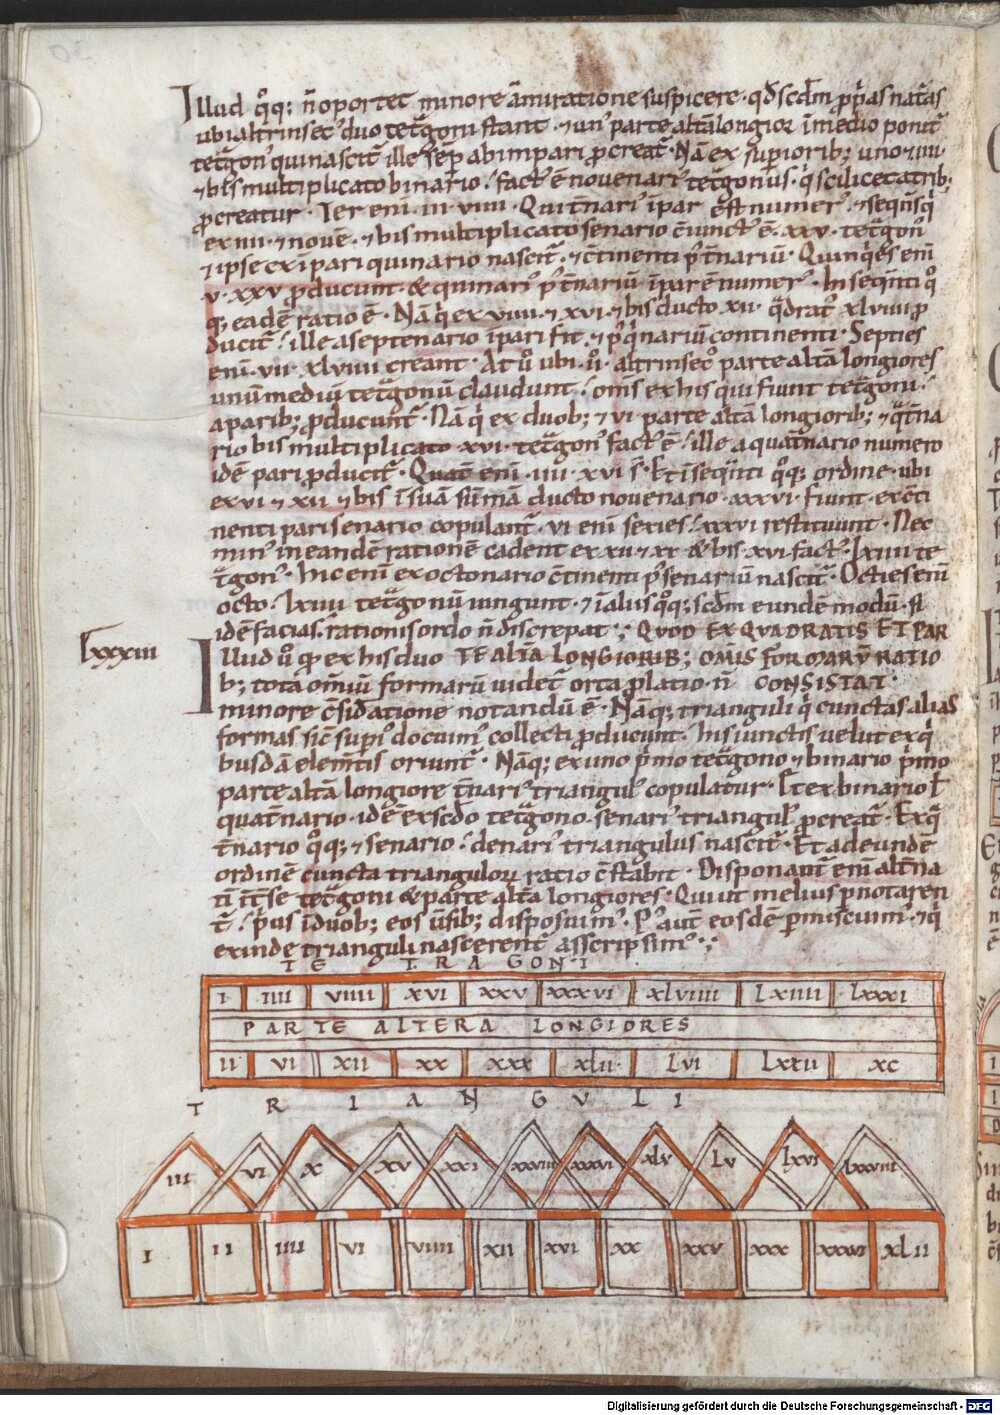 Illud qͦq; n̄ oportet minore āmiratione suspicere · qd̄ scd̄m p̄prias nat̄as
ubi altrinsec' duo tet̄goni stant · ⁊ un' parte altā longior ī medio ponit̄
tet̄gon' qui nascit̄ ille sēp ab impari p̄creat̄ · Nā ex superiorib; uno ⁊ iiii ·
⁊ bis multiplicato binario · fact' ē novenari' tet̄gonius · qͥ scilicet a trib;
p̄creatur · Ter eni · iii · viiii · Qui t̄nari' īpar est numer' · ⁊ seqn̄s qͥ
ex iiii · ⁊ novē · ⁊ bis multiplicato senario c̄iunct' ē · xxv · tet̄gon'
⁊ ipse ex īpari quinario nascit̄ · ⁊ c̄tinenti p' t̄nariū · Quinqies enī
v · xxv p̄ducunt · & quinari' p' t̄nariū īpar ē numer' · In seqn̄ti qͦ
q; eadē ratio ē · Nā qͥ ex viiii · ⁊ xvi · ⁊ bis ducto xii · qd̄rat' xlviiii p̄
ducit̄ · ille a septenario īpari fit · ⁊ p' qͥnariū continenti · Septies
enī · vii · xlviiii creant · At uͦ ubi · ii · altrinsec' parte altā longiores
unū mediū tet̄gonū claudunt · om̄s ex his qui fiunt tet̄goni ·
a parib; p̄ducunt̄ · Nā qͥ ex duob; ⁊ vi parte altā longiorib; ⁊ qͣt̄na
rio bis multiplicato xvi · tet̄gon' fact' ē · ille a quat̄nario numero
idē pari p̄ducit̄ · Quat̄ enī · iiii · xvi s̄ · Et ī seqn̄ti qͦq; ordine · ubi
ex vi ⁊ xii ⁊ bis ī suā sūmā ducto novenario · xxxvi · fiunt · ex c̄ti
nenti pari senario copulant̄ · vi enī sexies · xxxvi restituunt · Nec
min' in eandē rationē cadent ex xii ⁊ xx & bis xvi · fact' · lxiiii te
t̄gon' · hic enī ex octonario c̄tinenti p' senariū nascit̄ · Octies enī
octo · lxiiii tet̄gonū iungunt · ⁊ ī aliis qͦq; scd̄m eundē modū · si
idē facias · rationis ordo n̄ discrepat · QUOD EX QUADRATIS ET PAR
lxxxiii
Illud uͦ qd̄ ex his duo TE ALTA LONGIORIB; OMIS FORMARU RATIO
b; tota omniū formarū videt̄ orta p̄latio · n̄ CONSISTAT ·
minore c̄sid̄atione notandū ē · Nāq; trianguli qͥ cunctas alias
formas sic superi' docuim' collecti p̄ducunt · his iunctis velut ex qͥ
busdā elemt̄is oriunt̄ · Nāq; ex uno pͥmo tet̄gono ⁊ binario pͥmo
parte altā longiore t̄nari' triangul' copulatur · Et ex binario l̄
quat̄nario · id ē ex scd̄o tet̄gono · senari' triangul' p̄creat̄ · Ex qͣ
t̄nario qͦq; ⁊ senario · denari' triangulus nascit̄ · Et ad eundē
ordinē cuncta triangulorū ratio c̄stabit · Disponant̄ enī alt̄na
tī int̄ se tet̄goni & parte altā longiores · Qui ut melius p̄notaren
t̄ · pͥus ī duob; eos v̄sib; disposuim' · P' aut̄ eosdē p̄miscuim' · ⁊ qͥ
exinde trianguli nascerent̄ asscripsim' ·
TE TRA GONI
I IIII VIIII XVI XXV XXXVI XLVIIII LXIIII LXXXI
PARTE ALTERA LONGIORES
II VI XII XX XXX XLII LVI LXXII XC
T R I A N G V L I
III VI X XV XXI XXVIII XXXVI XLV LV LXVI LXXVIII
I II IIII VI VIIII XII XVI XX XXV XXX XXXVI XLII
Digitalisierung gefördert durch die Deutsche Forschungsgemeinschaft - DFG